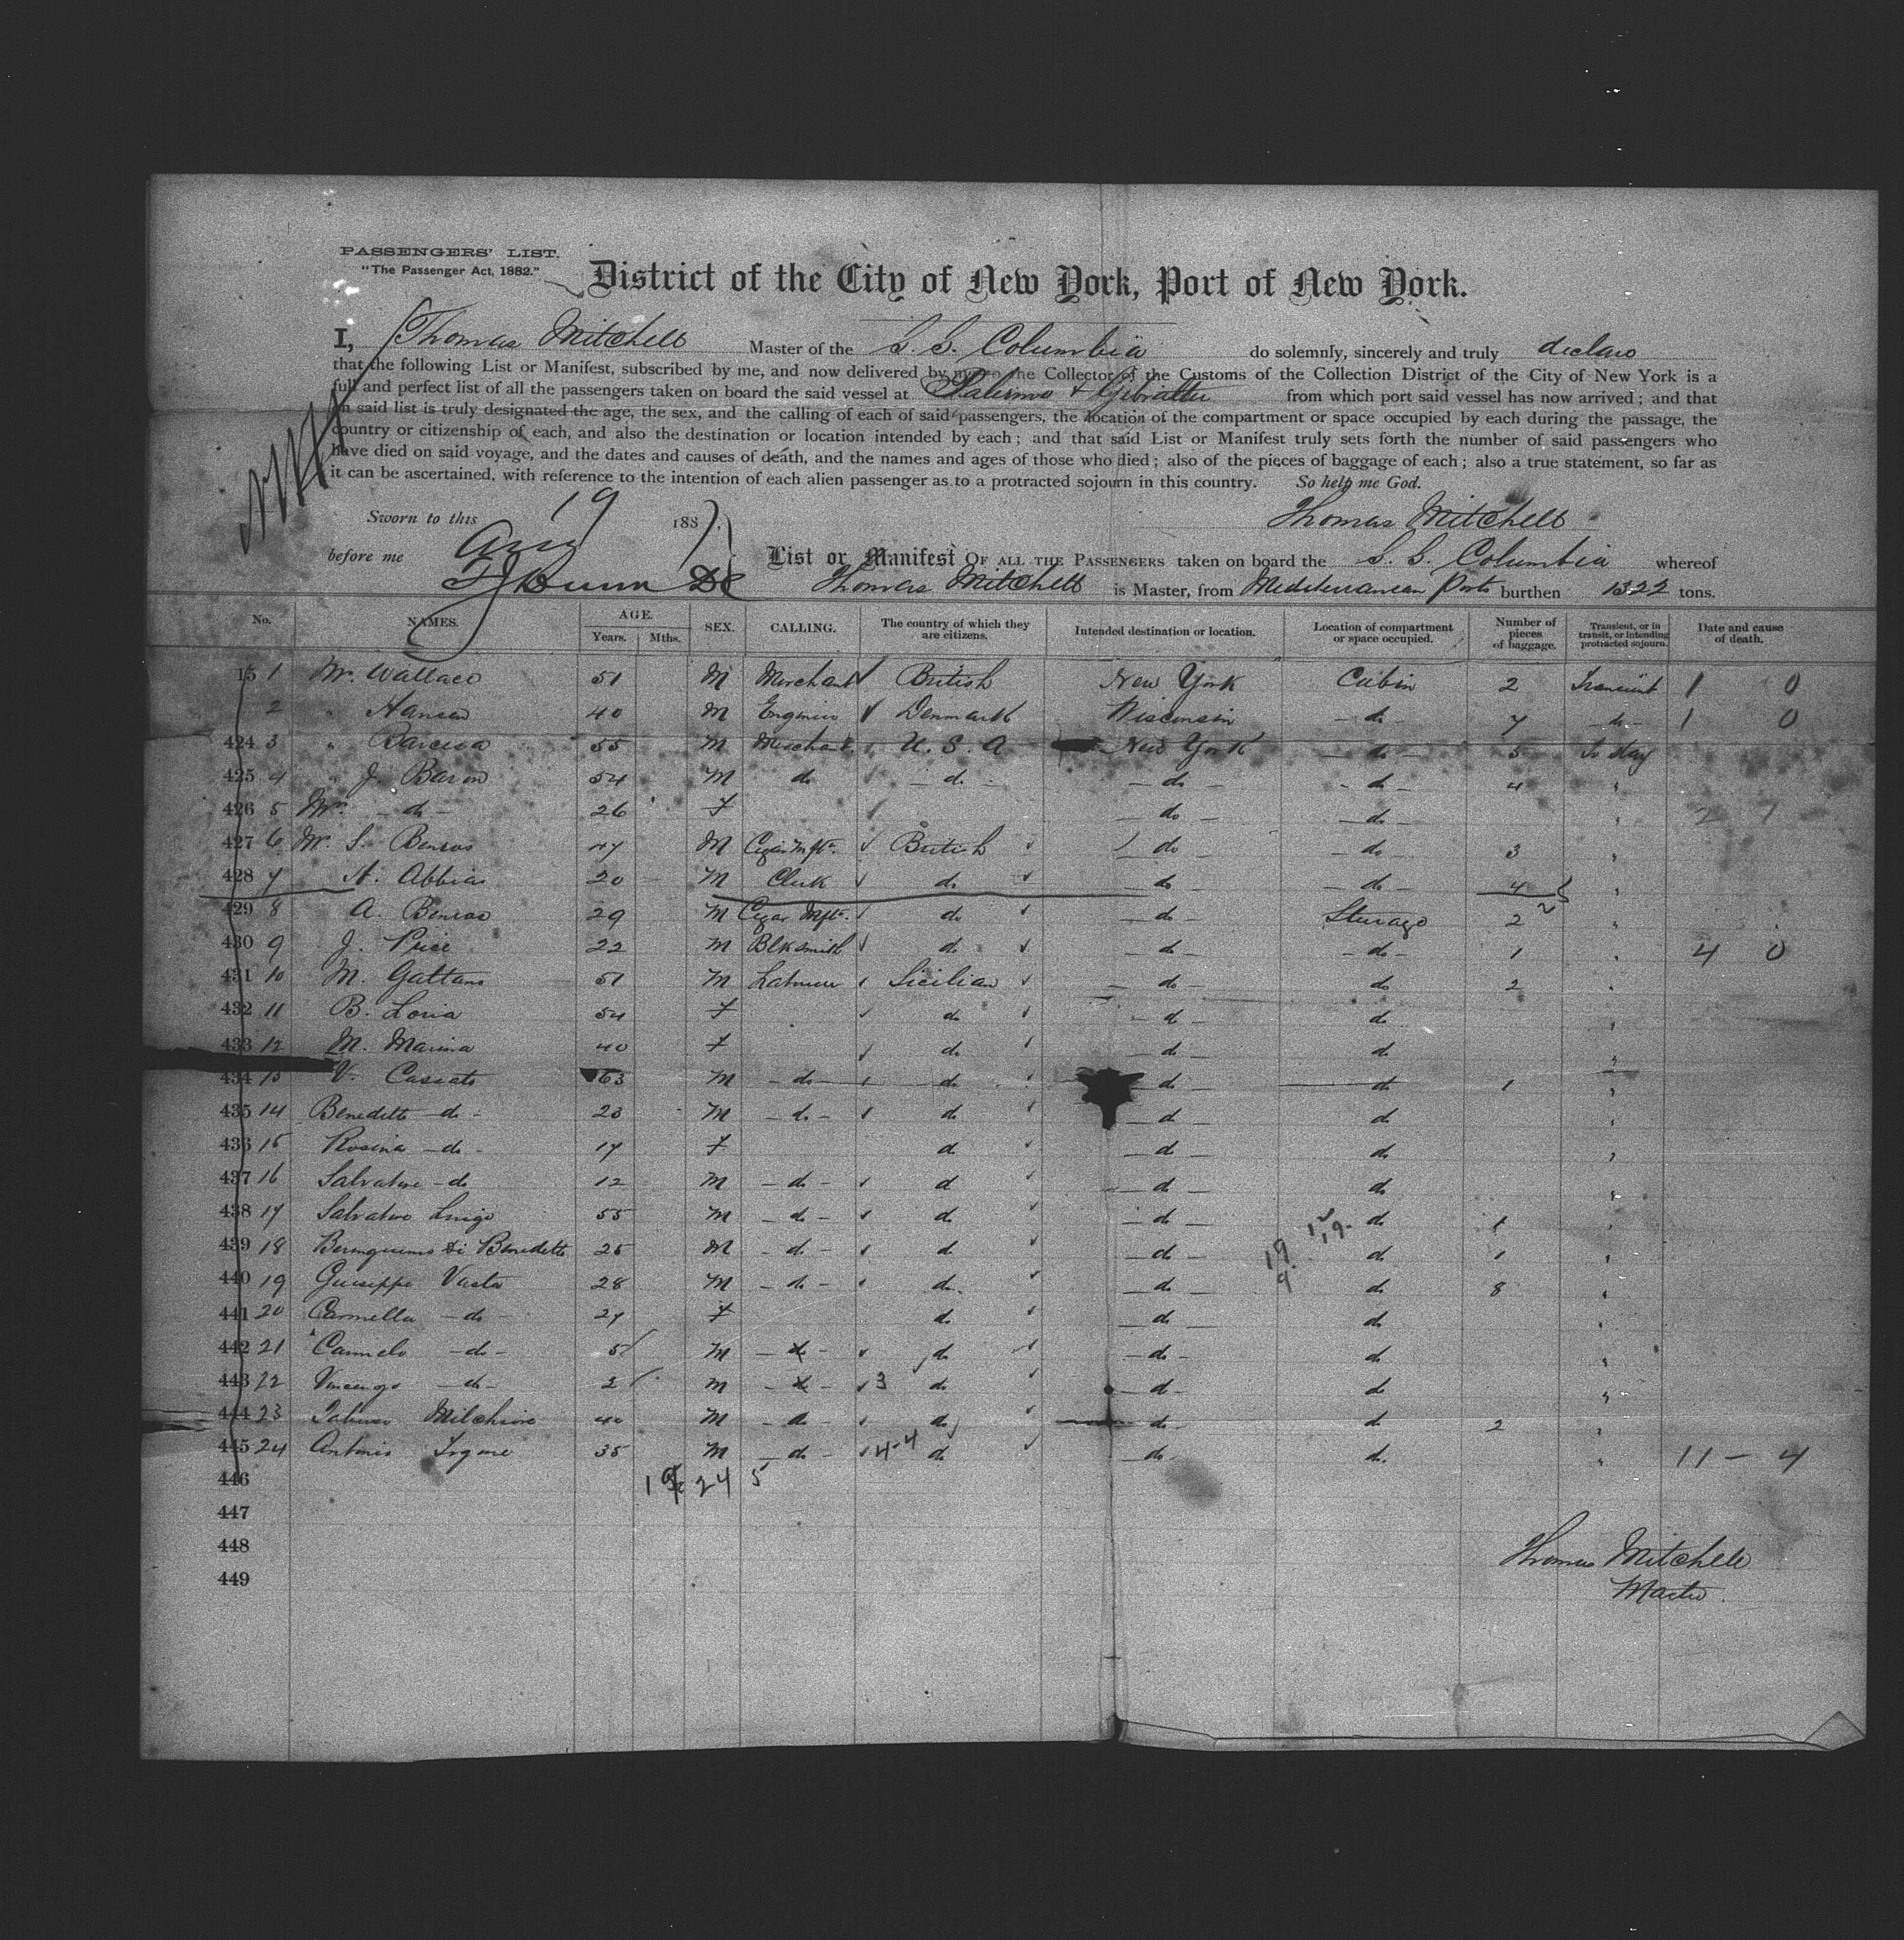 PASSENGERS' LIST.
"The Passenger Act, 1882."
District of the City of New York, Port of New York.
I, Thomas Mitchell Master of the S. S. Columbia do solemnly, sincerely and truly declare
that the following List or Manifest, subscribed by me, and now delivered by me to the Collector of the Customs of the Collection District of the City of New York is a
full and perfect list of all the passengers taken on board the said vessel at Palermo + Gibralter from which port said vessel has now arrived; and that
on said list is truly designated the age, the sex, and the calling of each of said passengers, the location of the compartment or space occupied by each during the passage, the
country or citizenship of each, and also the destination or location intended by each; and that said List or Manifest truly sets forth the number of said passengers who
have died on said voyage, and the dates and causes of death, and the names and ages of those who died; also of the pieces of baggage of each; also a true statement, so far as
it can be ascertained, with reference to the intention of each alien passenger as to a protracted sojourn in this country. So help me God.
Sworn to this 19 1887. Thomas Mitchell
before me Aug List or Manifest OF ALL THE PASSENGERS taken on board the S. S. Columbia whereof
Thomas Mitchell is Master, from Mediterranean Ports burthen 1322 tons.
No. NAMES. AGE. Years. Mths. SEX. CALLING. The country of which they are citizens. Intended destination or location. Location of compartment or space occupied. Number of pieces of baggage. Transient, or in transit, or intending protracted sojourn. Date and cause of death.
15 1 Mr. Wallace 51 M Merchant British New York Cabin 2 Transient 1 0
2 " Hansen 40 M Engineer Denmark Wisconsin - do - 7 - do - 1 0
424 3 " 55 M Merchant U. S. A New York do 5 To stay
425 4 " J. Baron 54 M do - do - - do - - do - 4 "
426 5 Mrs - do - 26 F do - do - " 2 1
427 6 Mr. S. Benros 47 M Cigar Mftr. British do - do - 3 "
428 7 A. Abbias 20 M Clerk do do - do - 4 "
429 8 A. Benros 29 M Cigar Mftr. do - do - Sturage 2 "
430 9 J. Price 22 M Blksmith do - do - - do - 1 " 4 0
431 10 M. Gattano 51 M Laborer Sicilian - do - do 2 "
432 11 B. Loria 54 F do - do - do "
433 12 M. Marina 40 F do - do - do "
434 13 V. Casciato 63 M - do - - do - do - do 1 "
435 14 Benedetto - do - 23 M - do - do - do do "
436 15 Rosina - do - 17 F do - do - do "
437 16 Salvatore - do 12 M - do - do - do - do "
438 17 Salvatore Luigo 55 M - do - do - do - do 1 "
439 18 di Benedetto 25 M - do - do - do - do 1 "
440 19 Guiseppe Vasta 28 M - do - do - do - do 8 "
441 20 Carmella - do - 27 F do - do - do "
442 21 Carmelo - do - 5 M - do - do - do - do "
443 22 Vincenzo - do - 2 M - do - 3 do - do - do "
444 23 40 M - do - do - do - do 2 "
445 24 Antonio 35 M - do - 4-4 do do - do. " 11 - 4
446 24 5
447
448
449
Thomas Mitchell
Master.